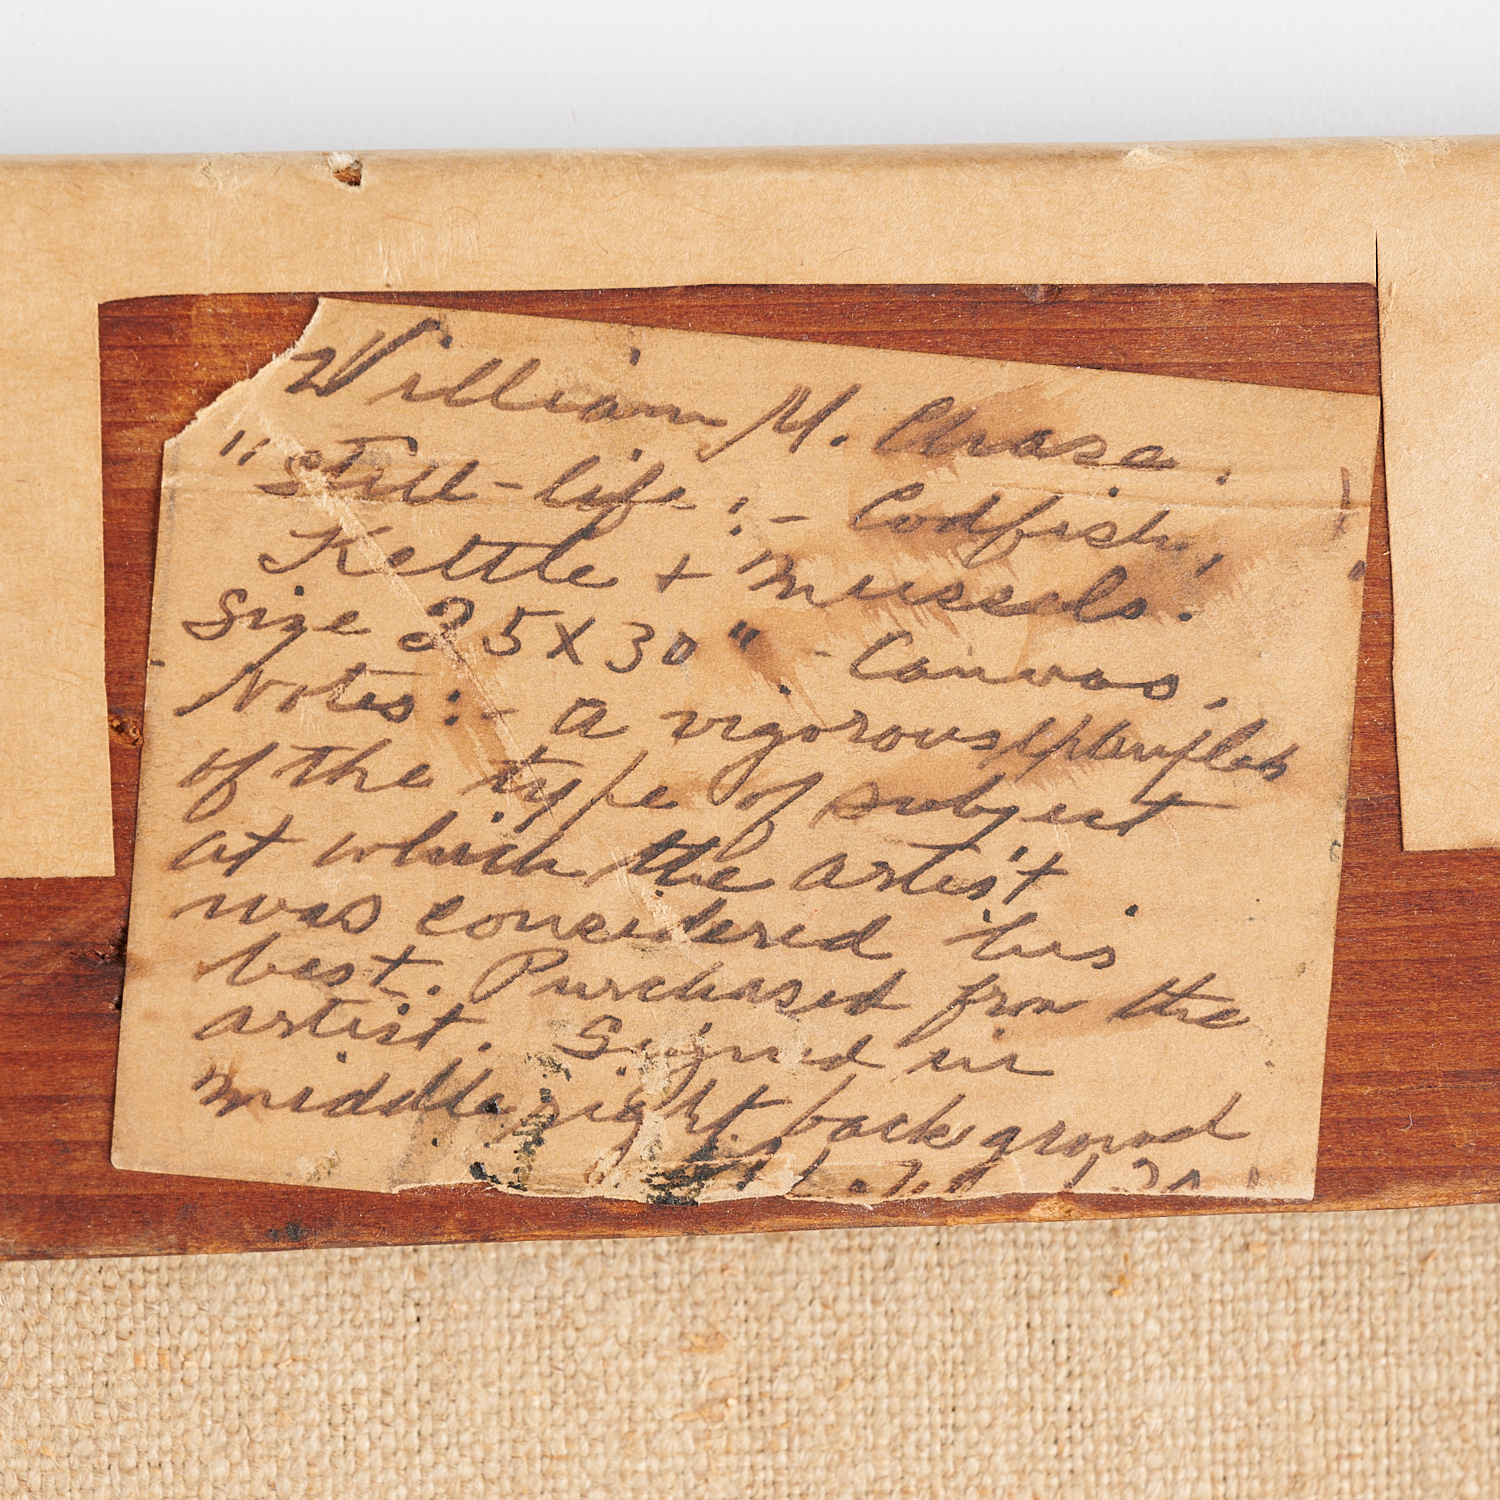 William M. Chase.
"Still-life:- Codfish,
Kettle + Mussels!
Size 25X30" - Canvas.
Notes:- A vigorous example
of the type of subject
at which the artist
was considered his
best. Purchased from the
artist. Signed in
middle right background